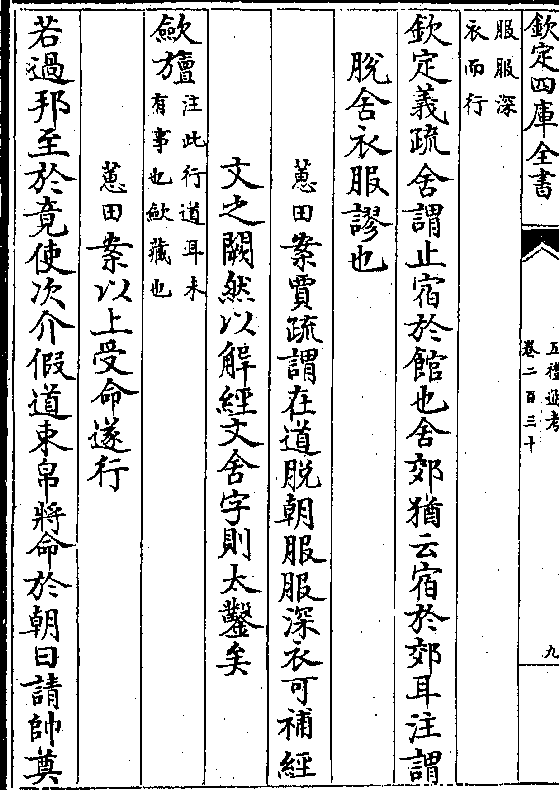 欽定四庫全書
五禮通考
卷二百三十
九
服服深
衣而行
欽定義疏舍謂止宿於館也舍郊猶云宿於郊耳注謂
脫舍衣服謬也
蕙田案賈疏謂在道脱朝服服深衣可補經
文之闕然以解經文舍字則太鑿矣
歛旜注此行道耳未
有事也歛藏也
蕙田案以上受命遂行
若過邦至於竟使次介假道束帛將命於朝曰請帥奠